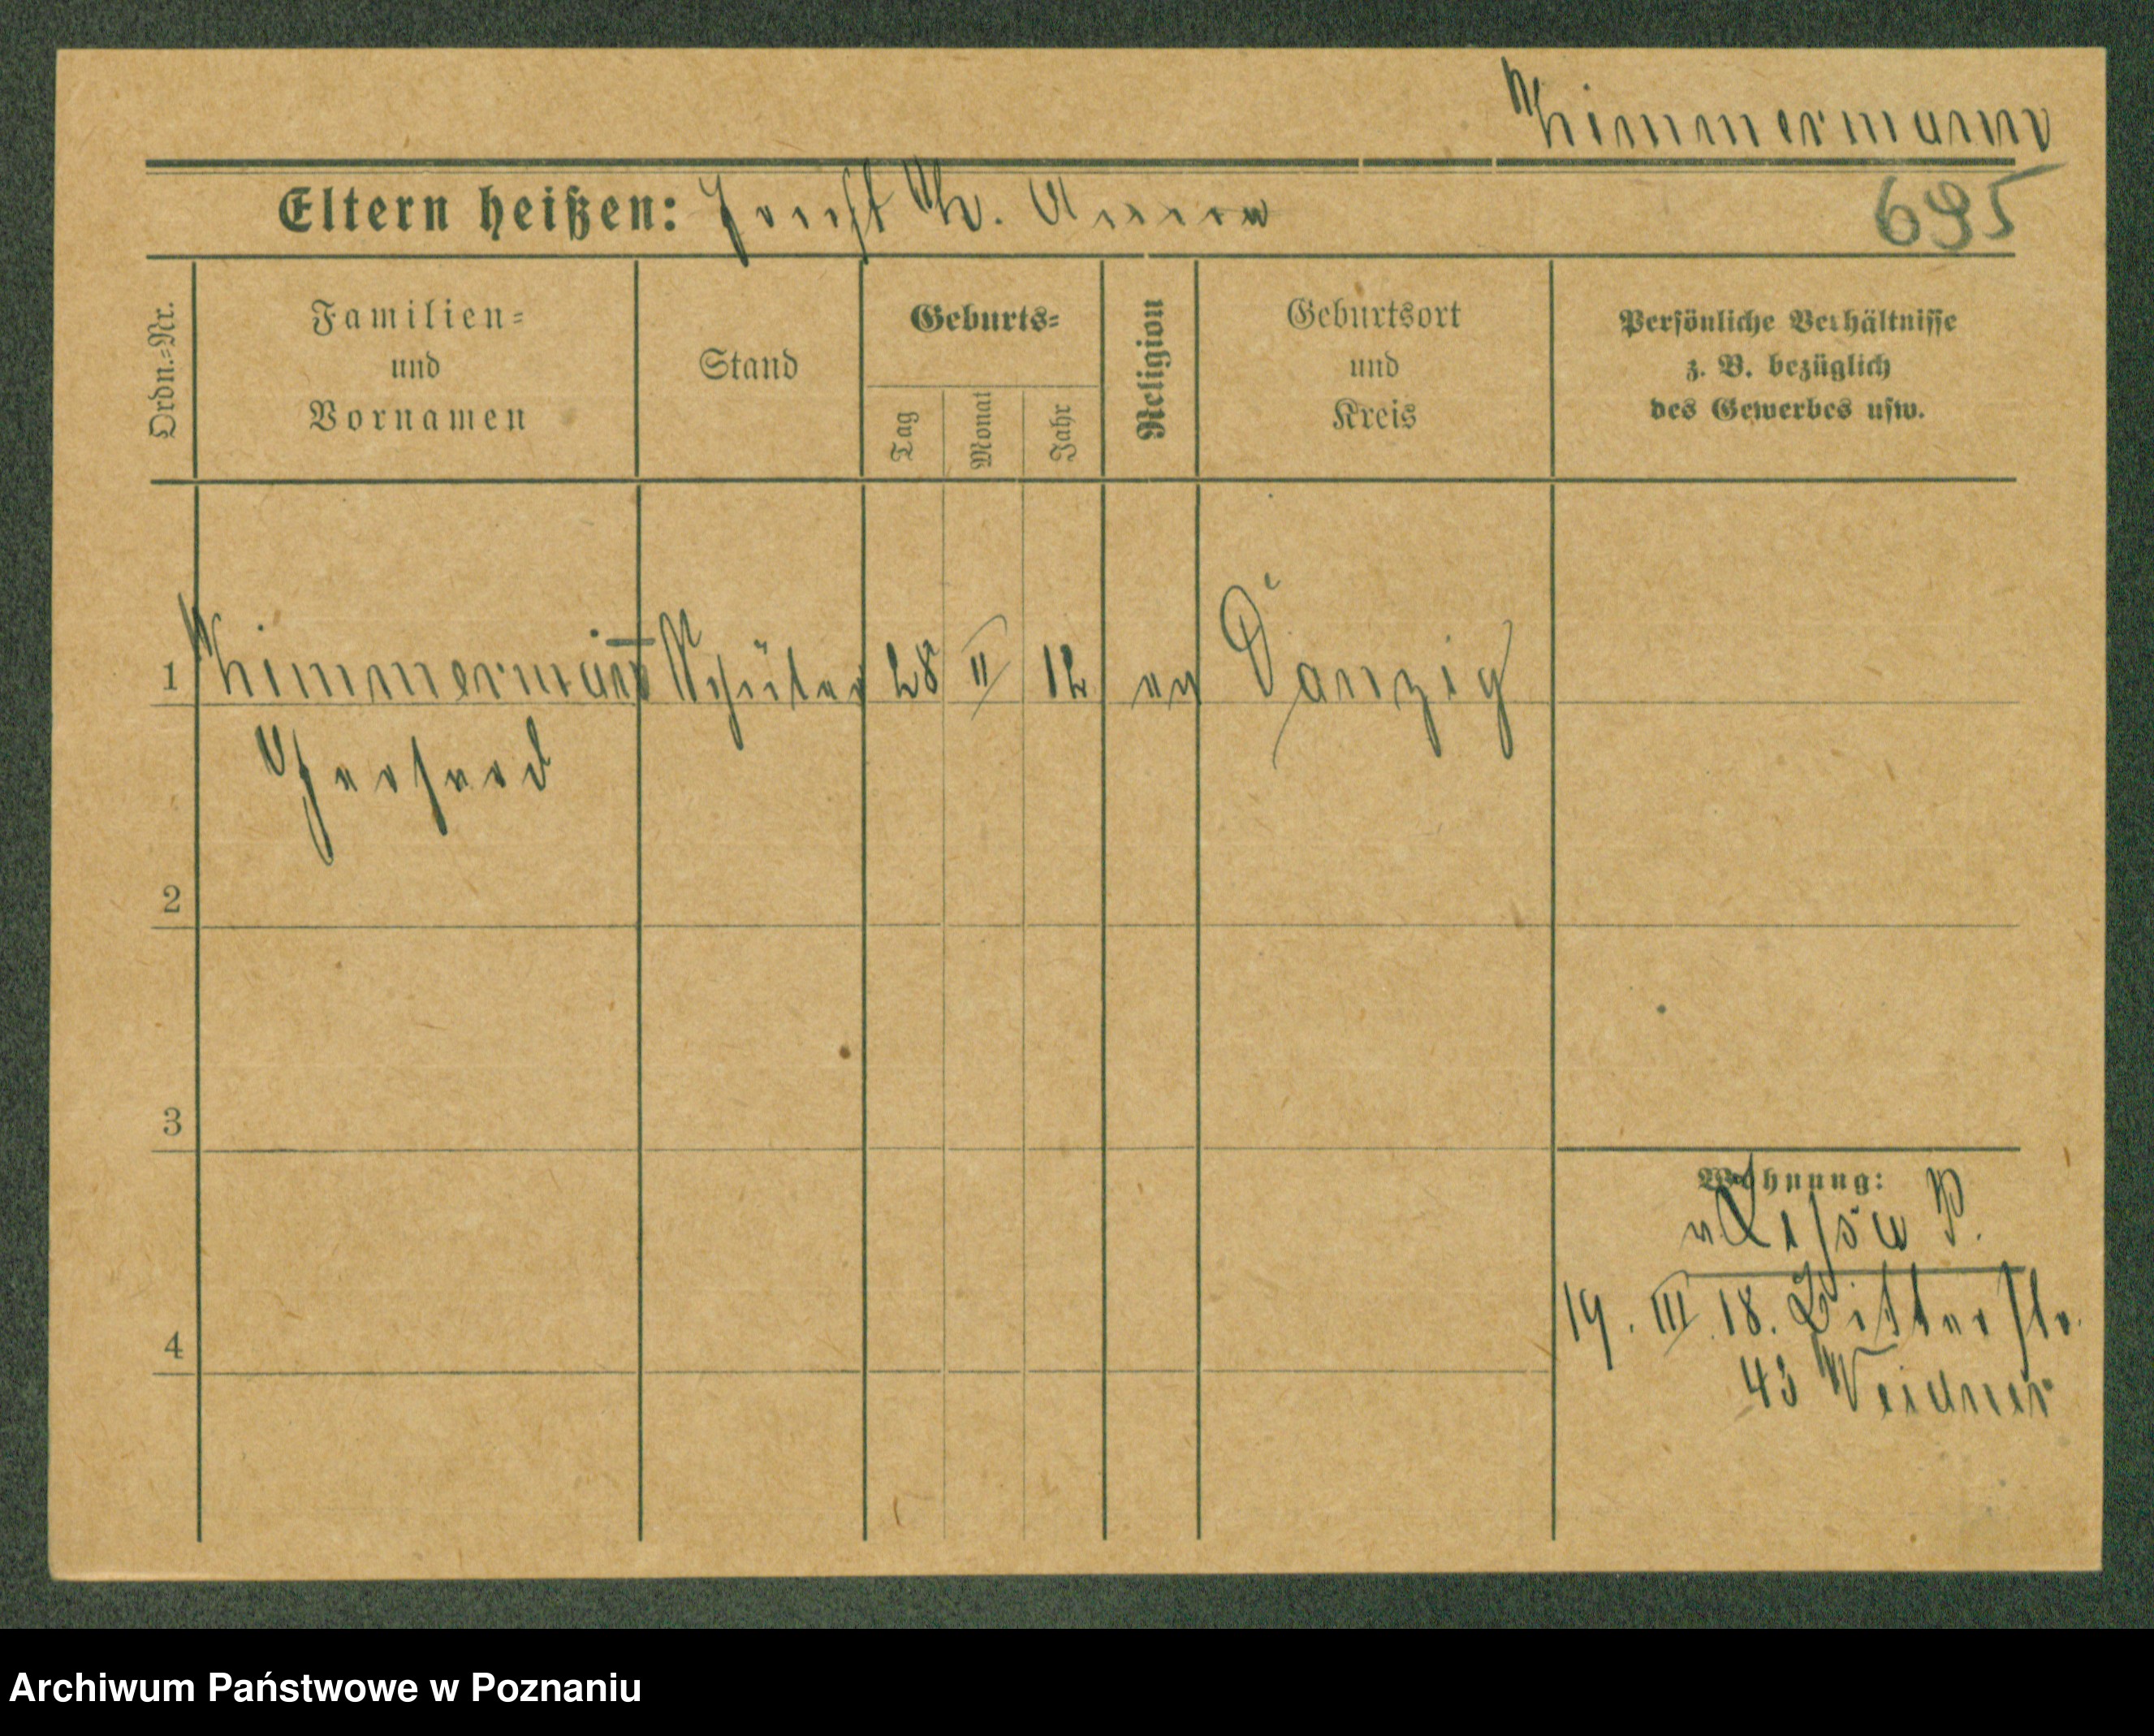 Zimmermann
Eltern heißen: Horst u. Anna
695
Ordn.-Nr.
Familien-
und
Vornamen
Stand
Geburts-
Tag
Monat
Jahr
Religion
Geburtsort
und
Kreis
Persönliche Verhältnisse
z. B. bezüglich
des Gewerbes usw.
1 Zimmermann Schüler 28 II 12 ev Danzig
Gerhard
2
3
4
Wohnung:
v. P.
19. III. 18. Ritterstr.
43 Weidner
Archiwum Państwowe w Poznaniu